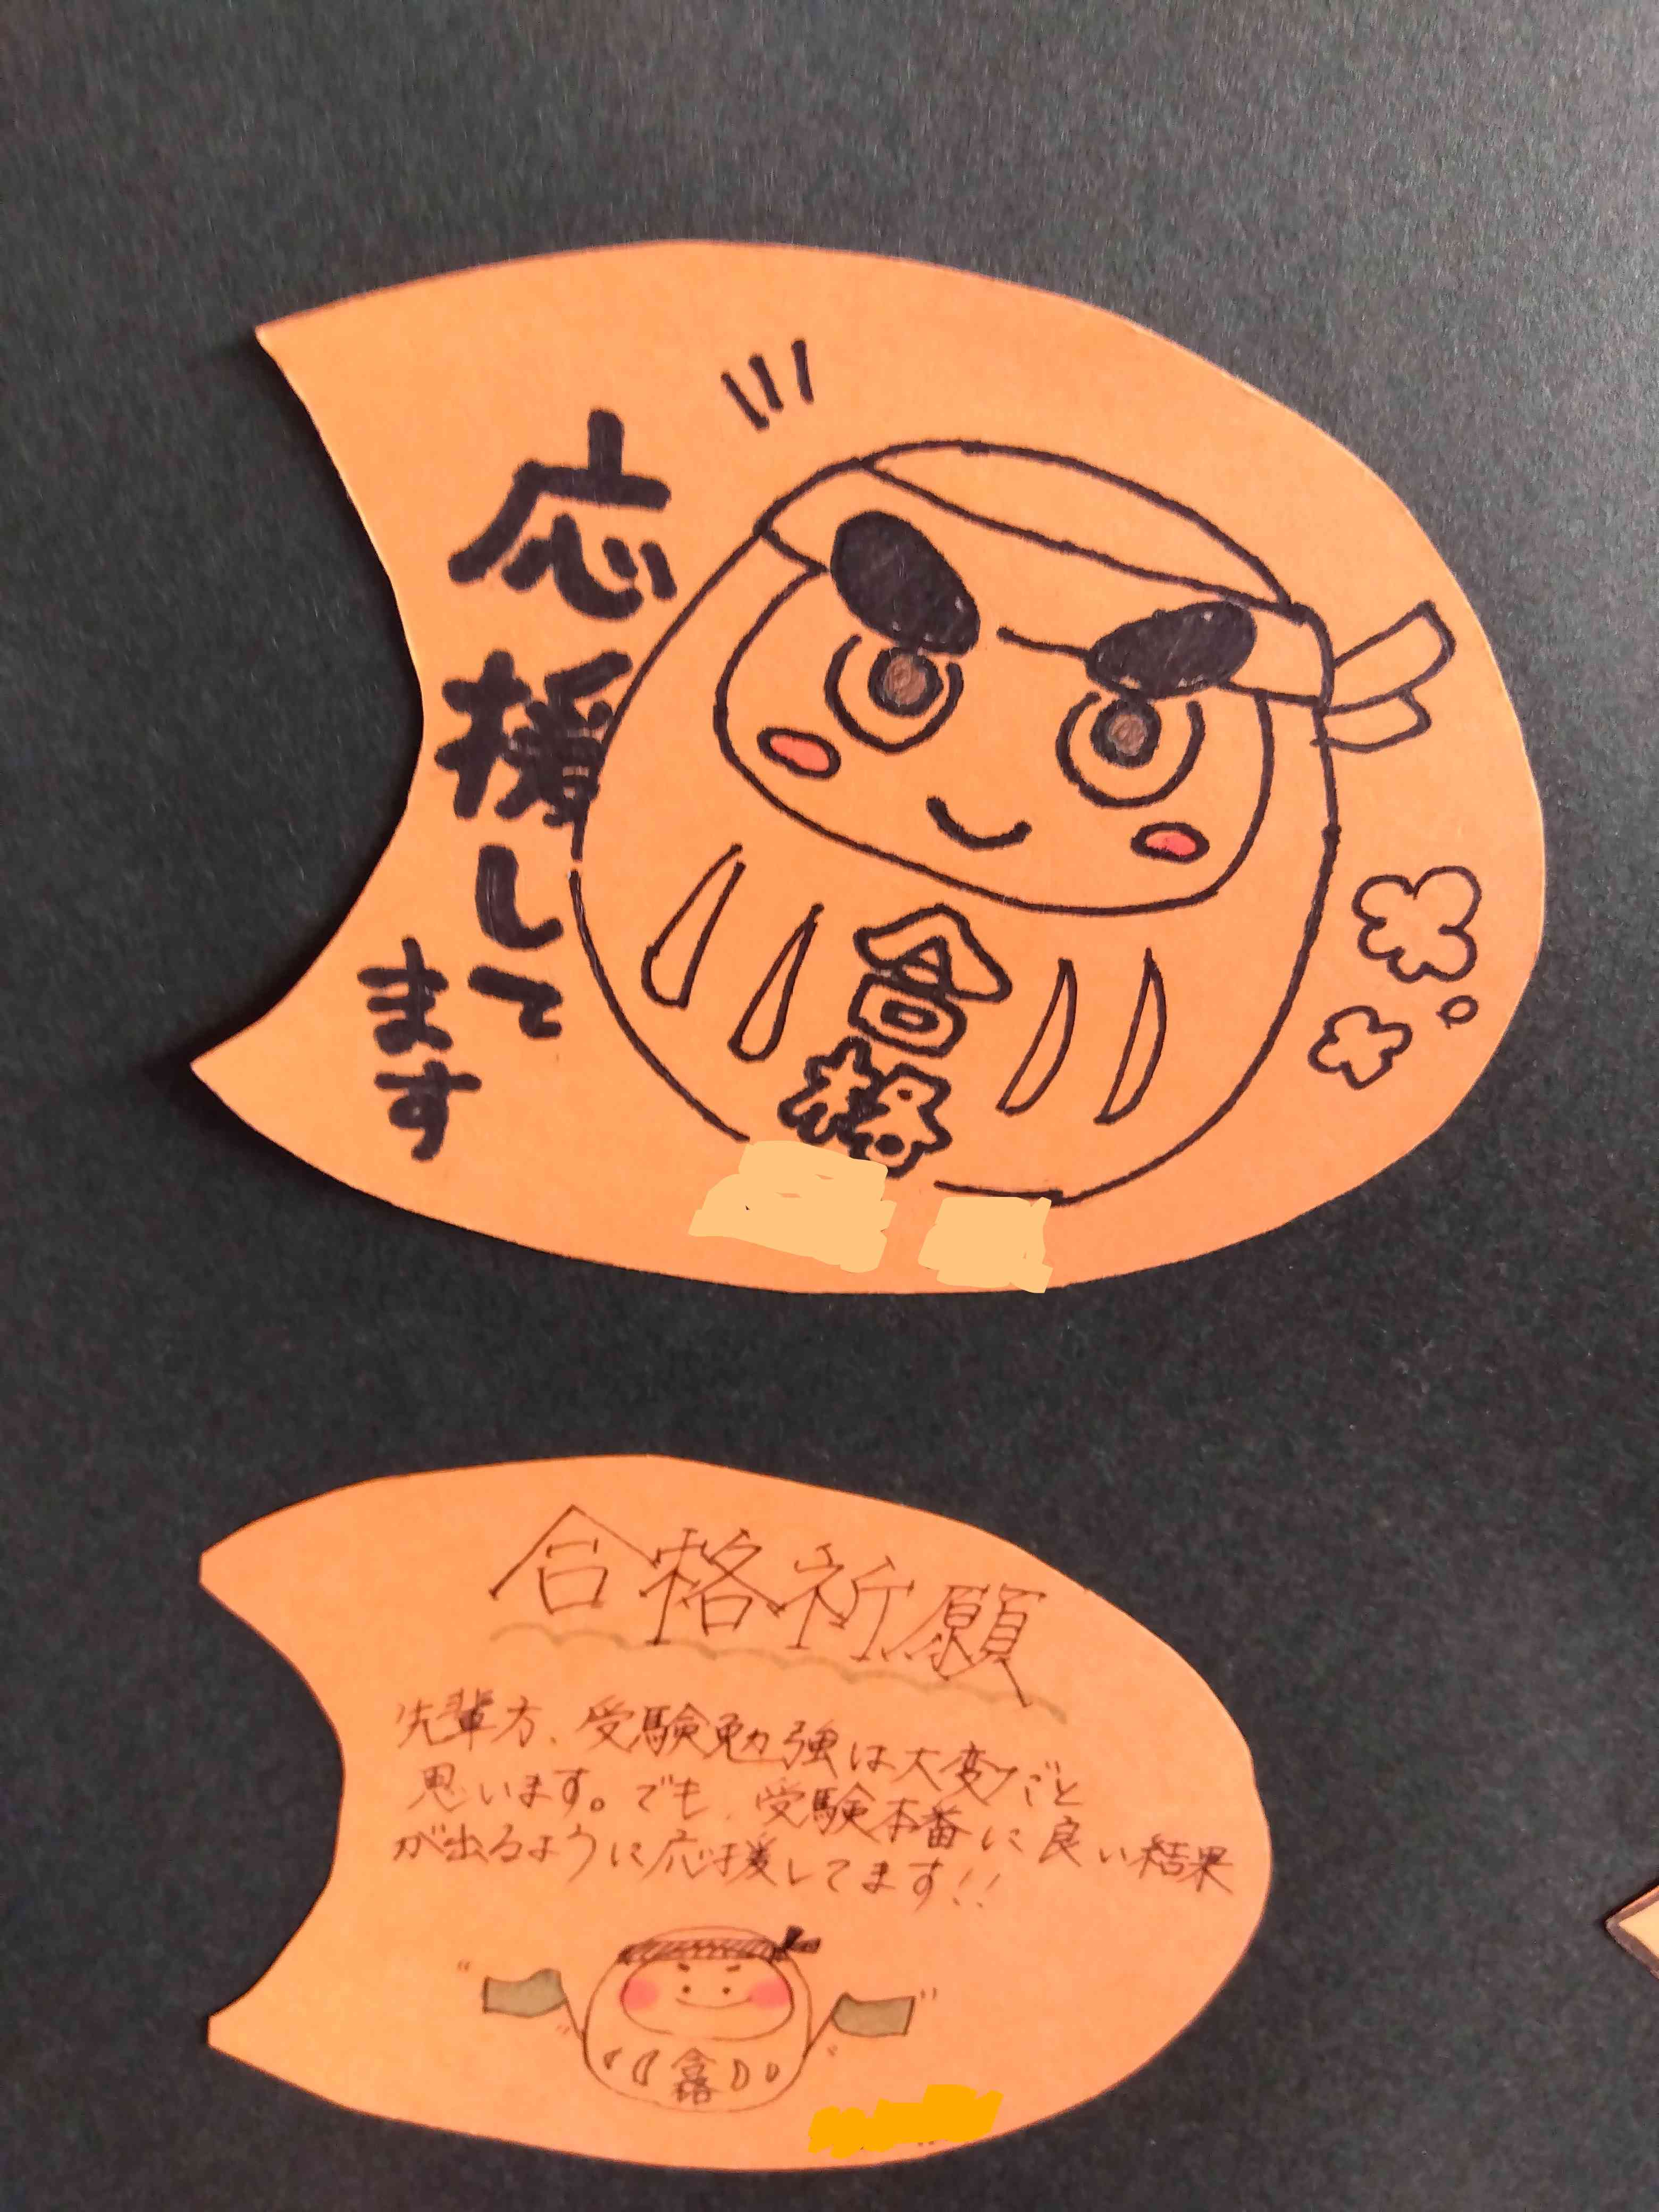 応援して
ます
合格
合格祈願
先輩方、受験勉強は大変だと
思います。でも、受験本番に良い結果
が出るように応援してます!!
合格